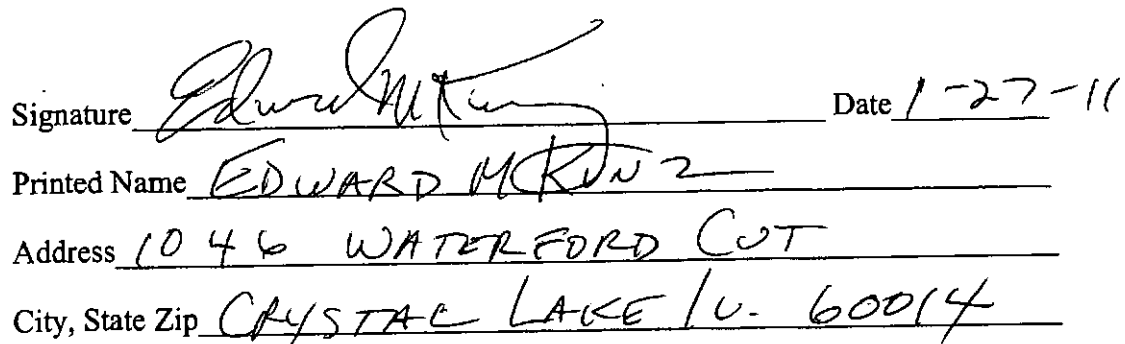 Signature Edward M Kunz Date 1-27-11
Printed Name EDWARD M KUNZ
Address 1046 WATERFORD CUT
City, State Zip CRYSTAL LAKE IL. 60014